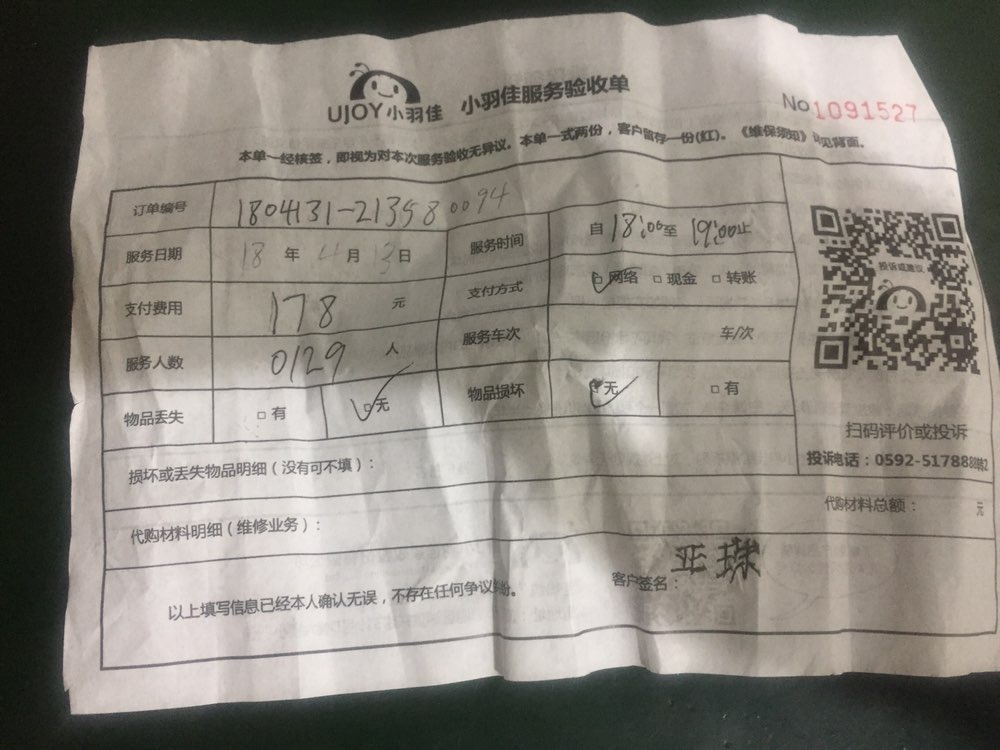 UJOY小羽佳 小羽佳服务验收单
No 1091527
本单一经核签，即视为对本次服务验收无异议。本单一式两份，客户留存一份(红)。《维保须知》见背面。
订单编号 1804131-213580094
服务日期 18 年 4 月 13 日 服务时间 自 18:00 至 19:00 止
支付费用 178 元 支付方式 网络 现金 转账
服务人数 0129 人 服务车次 车/次
物品丢失 有 无 物品损坏 无 有
投诉或建议
扫码评价或投诉
投诉电话：0592-5178888转2
损坏或丢失物品明细（没有可不填）：
代购材料明细（维修业务）： 代购材料总额： 元
以上填写信息已经本人确认无误，不存在任何争议纠纷。 客户签名：